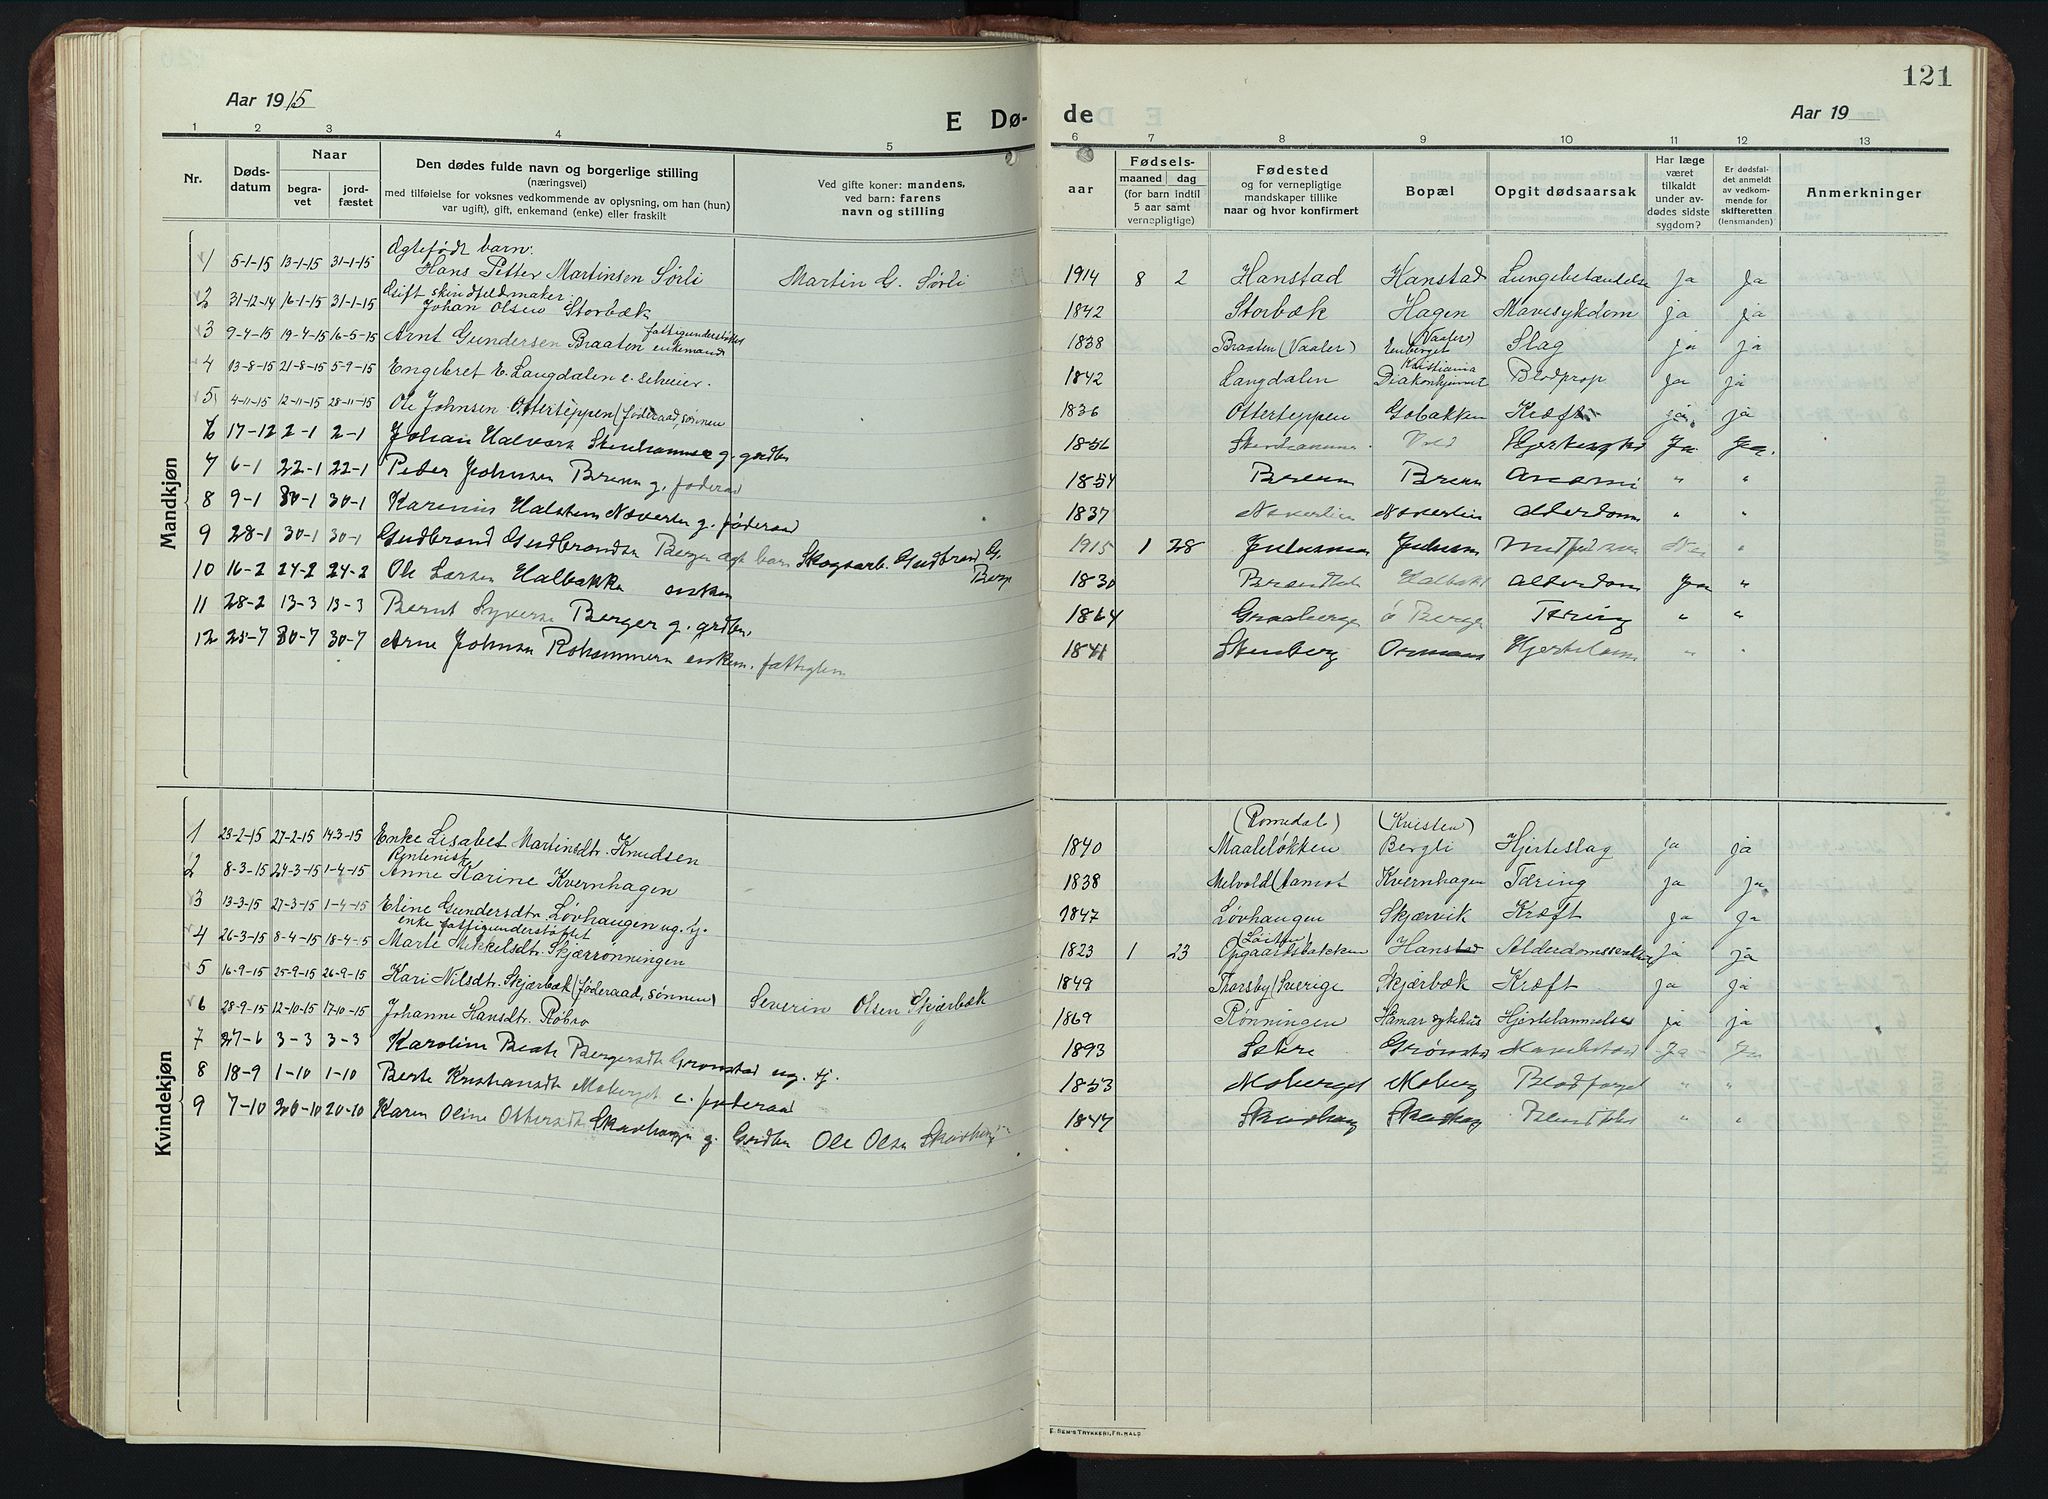 121
Aar 1915
E Dø-
de
Aar 19
1 2 3 4 5 6 7 8 9 10 11 12 13
Nr.
Døds-
datum
Naar
begra-
vet
jord-
fæstet
Den dødes fulde navn og borgerlige stilling
(næringsvei)
med tilføielse for voksnes vedkommende av oplysning, om han (hun)
var ugift), gift, enkemand (enke) eller fraskilt
Ved gifte koner: mandens,
ved barn: farens
navn og stilling
Fødsels-
aar
maaned dag
(for barn indtil
5 aar samt
vernepligtige)
Fødested
og for vernepligtige
mandskaper tillike
naar og hvor konfirmert
Bopæl
Opgit dødsaarsak
Har læge
været
tilkaldt
under av-
dødes sidste
sygdom?
Er dødsfal-
det anmeldt
av vedkom-
mende for
skifteretten
(lensmanden)
Anmerkninger
Mandkjøn
Ægtefødt barn:
1 5-1-15 13-1-15 31-1-15 Hans Petter Martinsen Sørli Martin G. Sørli 1914 8 2 Hanstad Hanstad Lungebetændelse Ja Ja
Gift skindfeldmaker:
2 31-12-14 16-1-15 31-1-15 Johan Olsen Storbæk 1842 Storbæk Hagen Mavesykdom ja ja
fattigunderstøttet (Vaaler)
3 9-4-15 19-4-15 16-5-15 Arnt Gundersen Braaten enkemand 1838 Braaten (Vaaler) Enberget Slag ja ja
Kristiania
4 13-8-15 21-8-15 5-9-15 Engebret E. Langdalen e. 1842 Langdalen Diakonhjemmet Blodprop Ja ja
5 4-11-15 12-11-15 28-11-15 Ole Johnsen Otterteppen (føderaad, sønnen 1836 Otterteppen Gobakken Kræft ja ja
6 17-12 2-1 2-1 Johan Halvors Stenhammer g. gårdbr 1856 Vold Ja Ja.
7 6-1 22-1 22-1 Peder Johnsen Brenn g. føderad 1854 Brenn Brenn " "
8 9-1 30-1 30-1 Karenius Halstens Nøverlien g. føderaad 1837 Nøverlien Nøverlien Alderdom " "
9 28-1 30-1 30-1 Gudbrand Gudbrandsen Bergen ægt barn Skogsarb. Gudbrand G. 1915 1 28 Nei "
Berge
10 16-2 24-2 24-2 Ole Larsen Halbakke enkem 1830 Halbakk Alderdom Jaa "
11 28-2 13-3 13-3 Bernt Syvers Berger g. grdbr. 1864 Graaberget ø Berge Tæring " "
12 25-7 30-7 30-7 Arne Johnsen Rohammeren enkem. fattiglem 1841 Stenberg Hjertelam " "
Kvindekjøn
(Romedal) (Kvisten)
1 23-2-15 27-2-15 14-3-15 Enke Lisabet Martinsdtr. Knudsen 1840 Maaleløkken Bergli Hjerteslag Ja ja
Rentenist
2 8-3-15 24-3-15 1-4-15 Anne Karine Kvernhagen 1838 Melvold (Aamot Kvernhagen Tæring ja ja
3 13-3-15 27-3-15 1-4-15 Eline Gundersdtr. Løvhaugen ug. tj. 1847 Løvhaugen Skjærvik Kræft ja ja
enke fattigunderstøttet (Løiten)
4 26-3-15 8-4-15 18-4-15 Marte Mikkelsdtr. Skjærrønningen 1823 1 23 Opgaardsbakken Hanstad Alderdomssvækkelse Ja ja
5 16-9-15 25-9-15 26-9-15 Kari Nilsdtr. Skjærbæk (føderaad, sønnen) Severin Olsen Skjærbæk 1849 Thorsby (Sverige Skjærbæk Kræft ja ja
6 28-9-15 12-10-15 17-10-15 Johanne Hansdtr. Røbro 1869 Rønningen Hamar sykehus Hjertelammelse ja ja
7 27-6 3-3 3-3 Karoline Beate Bergersdtr Grønstad ug. tj. 1893 Setre Grønstad Ja
8 18-9 1-10 1-10 Berte Kristiansdtr Moberget e. føderaad 1853 Moberget Moberg " "
9 7-10 20-10 20-10 Karen Oline Ottersdtr Skavhaugen g. Gårdbr Ole Olsen Skavhaugen 1847 Skavhaug Skavhaug " "
E. SEM'S TRYKKERI, FR.HALD